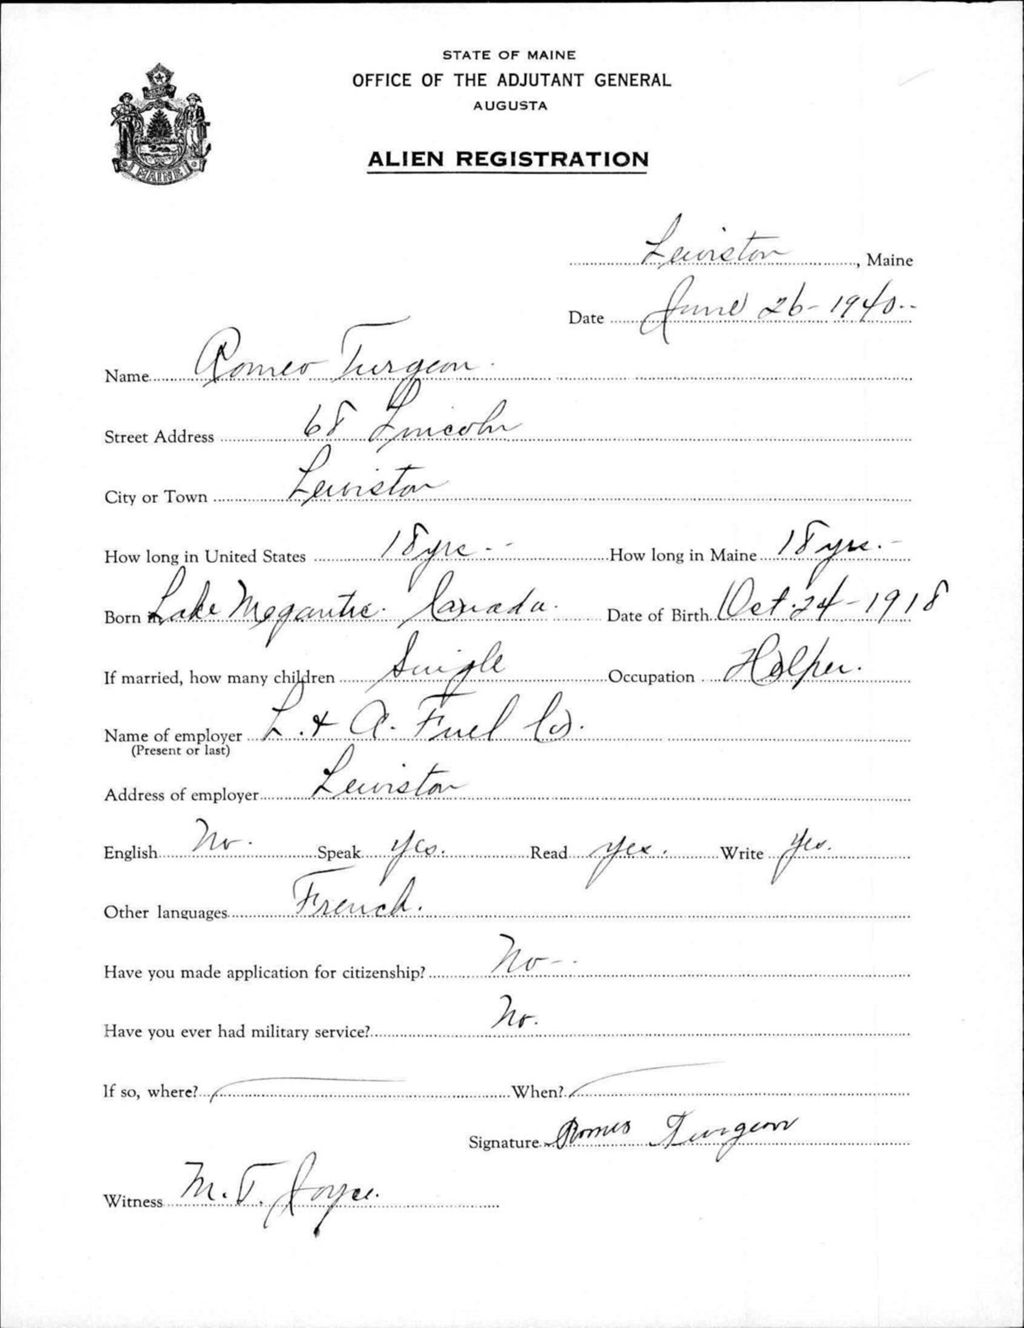 STATE OF MAINE
OFFICE OF THE ADJUTANT GENERAL
AUGUSTA
ALIEN REGISTRATION
MAINE
Lewiston, Maine
Date June 26-1940
Name Romeo Turgeon.
Street Address 68 Lincoln
City or Town Lewiston
How long in United States 18 yrs - How long in Maine 18 yrs. -
Born Lake Megantic. Canada. Date of Birth Oct. 24-1918
If married, how many children Single Occupation Helper.
Name of employer L. & A. Fuel Co.
(Present or last)
Address of employer Lewiston
English No. Speak yes. Read yes. Write yes.
Other languages French.
Have you made application for citizenship? No -
Have you ever had military service? No.
If so, where? When?
Signature Romeo Turgeon
Witness M. T. Joyce.